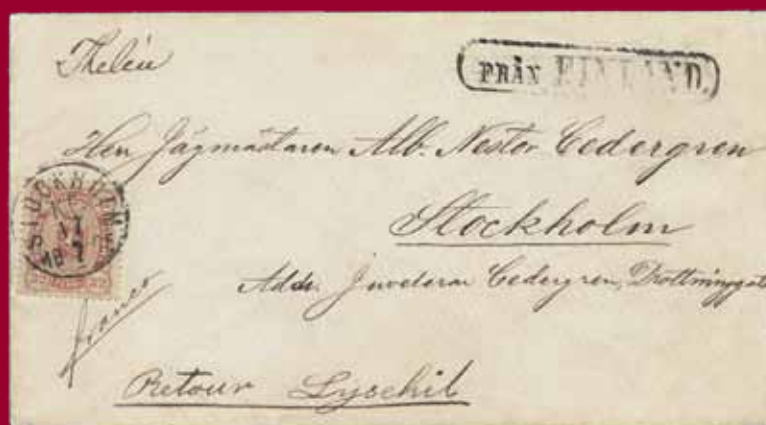 Thelén
FRÅN FINLAND.
Herr Jägmästaren Alb. Nestor Cedergren
Stockholm
STOCKHOLM
17
Adde. Juveleraren Cedergren, Drottninggat
franco
Retour Lysekil